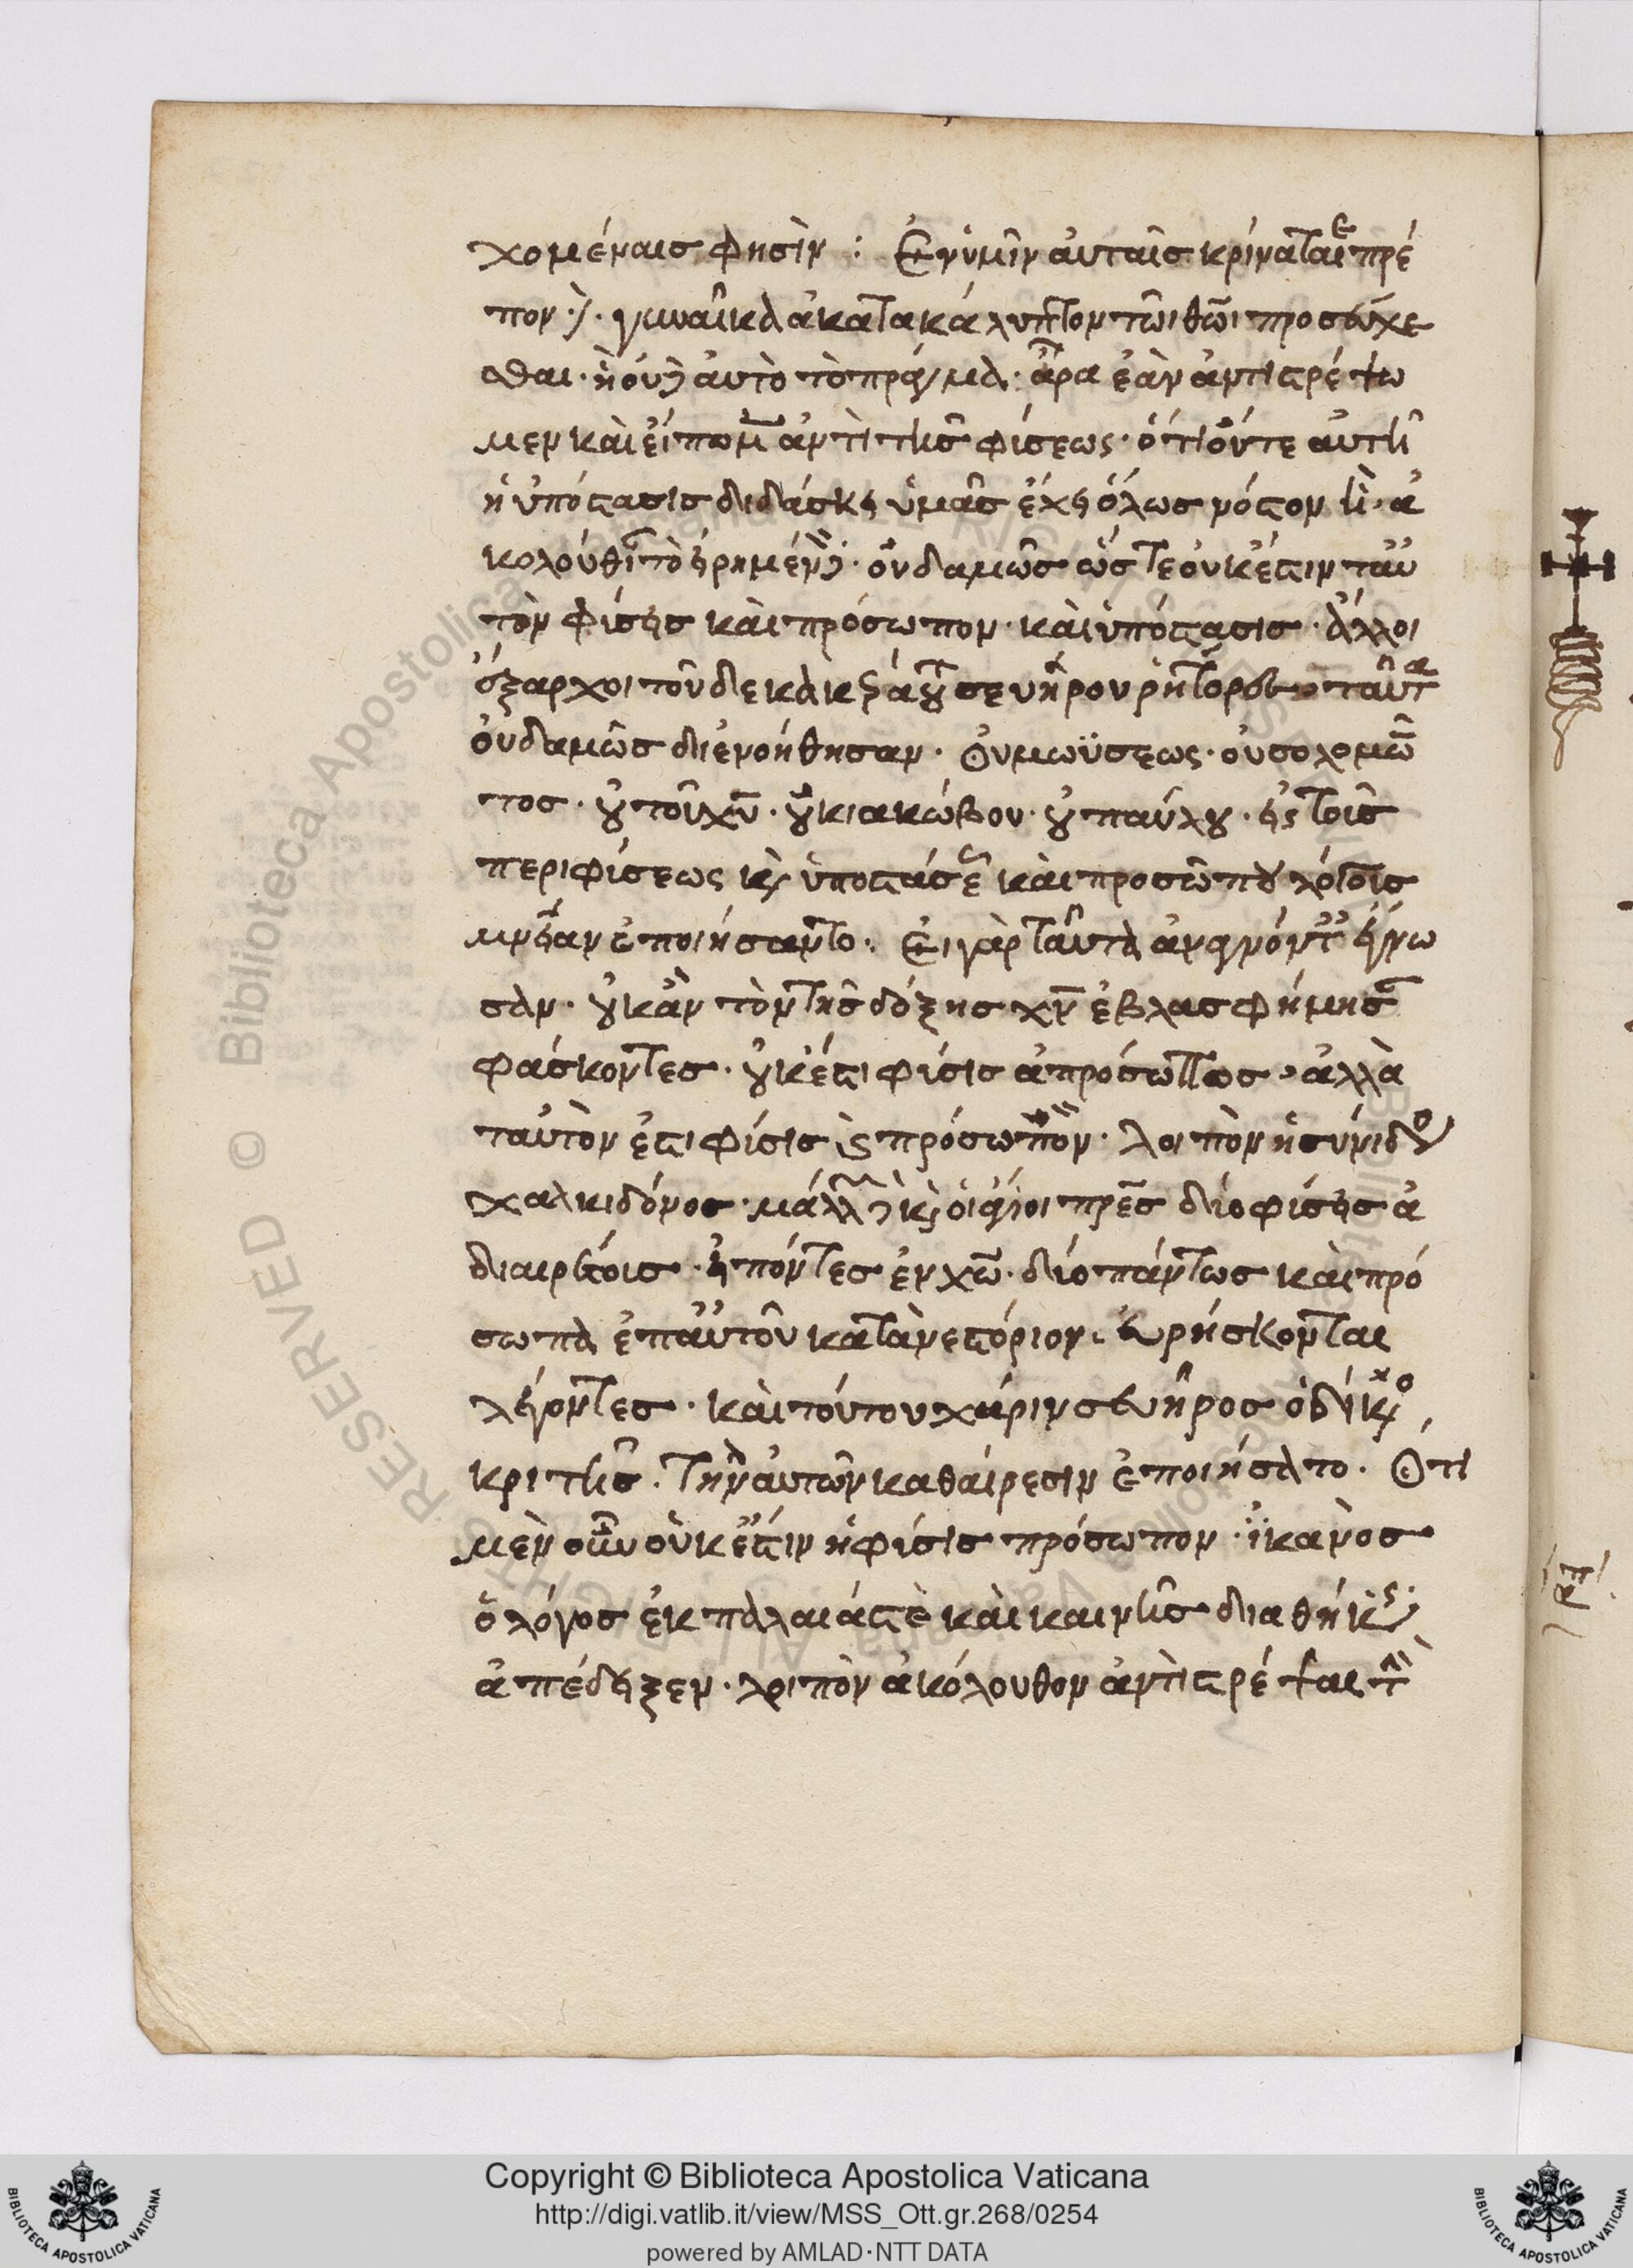 χομέναις φησὶν : Ἐν ὑμῖν αὐταῖς κρίνατε πρέ
πον γυναῖκα ἀκατακάλυπτον τῶι θῶι προσεύχε
σθαι· ἢ οὐδὲ αὐτὸ τὸ πρᾶγμα· ἆρα ἐὰν ἀντιστρέψω
μεν καὶ εἴπωμεν ἀντὶ τῆς φύσεως· ὅτι οὔτε αὐτὴ
ἡ ὑπόστασις διδάσκει ὑμᾶς ἔχει ὅλως νόστον ἢ ἀ
κολουθίαν τὸ εἰρημένον· οὐδαμῶς ὥστε οὐκ ἔστιν ταὐ
τὸν φύσις καὶ πρόσωπον· καὶ ὑπόστασις· ἀλλ' οἱ
ἔξαρχοι τοῦ δεκα σευῆρον ῥήτορος ταῦτα
οὐδαμῶς διενοήθησαν· Οὐ μωϋσέως· οὐ σολομῶν
τος· οὐ τοῦ χυ· οὐκ ἰακώβου· οὐ παύλου· εἰς τοῖς
περὶ φύσεως καὶ ὑποστάσεως καὶ προσώπου λόγοις
μνείαν ἐποιήσαντο· Εἰ γὰρ ταῦτα ἀναγνόντες ἔγνω
σαν· οὐκ ἂν τὸν τῆς δόξης χν ἐβλασφήμησαν
φάσκοντες· οὐκ ἔστι φύσις ἀπρόσωπος· ἀλλὰ
ταὐτὸν ἐστι φύσις καὶ πρόσωπον· λοιπὸν ἡ σύνοδος
χαλκιδόνος· μᾶλλον δὲ καὶ οἱ ἅγιοι πρες δύο φύσεις ἀ
διαιρέτοις· εἰπόντες ἐν χω· δύο πάντως καὶ πρό
σωπα ἐπ' αὐτοῦ κατὰ νεστόριον· εὑρήσκονται
λέγοντες· καὶ τούτου χάριν σευῆρος ὁ δίκαιος
κριτὴς· τὴν αὐτῶν καθαίρεσιν ἐποιήσατο· Ὅτι
μὲν οὖν οὐκ ἔστιν ἡ φύσις πρόσωπον· ἱκανὸς
ὁ λόγος ἐκ παλαιᾶς τὲ καὶ καινῆς διαθήκης
ἀπέδειξεν· λοιπὸν ἀκόλουθον ἀντιστρέψαι τὴν
Copyright © Biblioteca Apostolica Vaticana
http://digi.vatlib.it/view/MSS_Ott.gr.268/0254
powered by AMLAD·NTT DATA